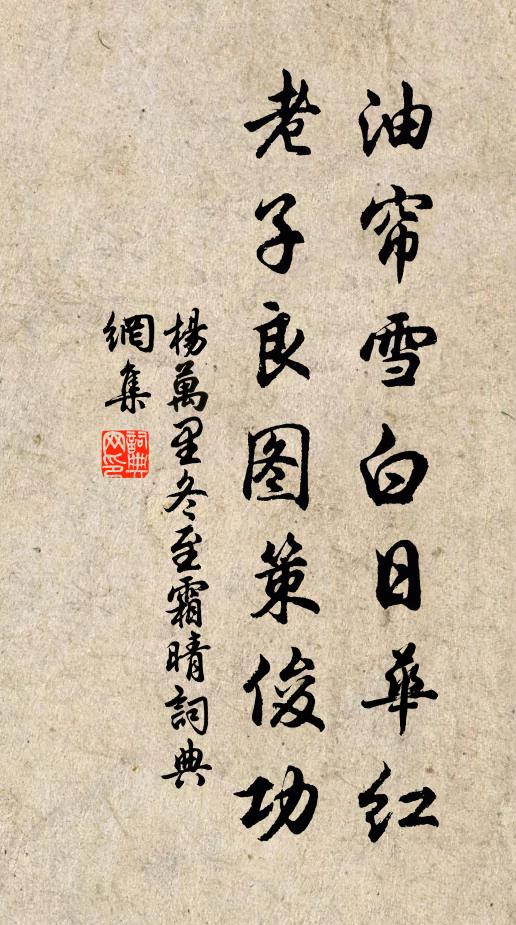 油帘雪白日华红
老子良图策俊功
楊萬里冬至霜晴詞典
網集
詞典网印